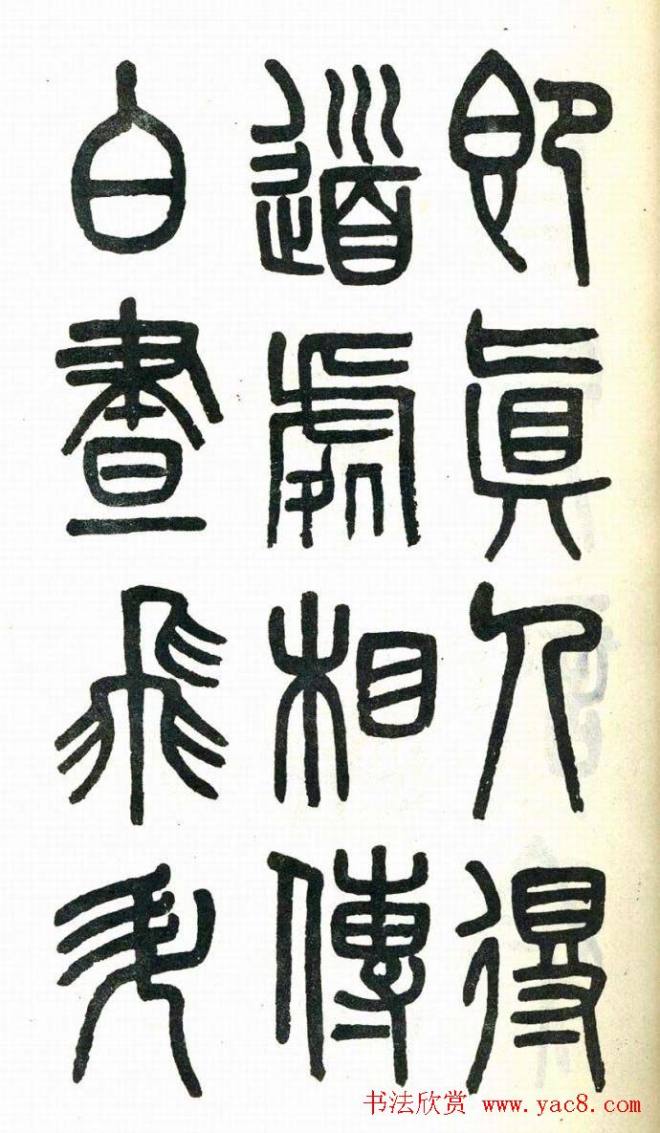 即眞人得
道處相傳
白晝飛升
书法欣赏 www.yac8.com